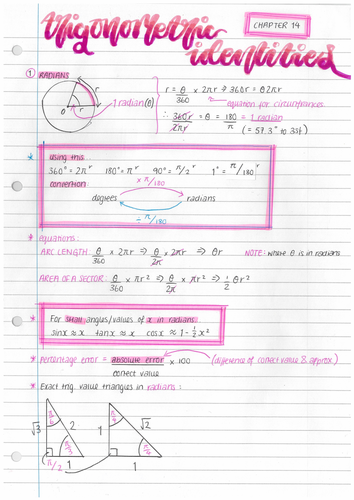 trigonometric identities
CHAPTER 14
① RADIANS
r
r
O
1 radian (θ)
r = θ/360 × 2πr → 360r = θ2πr
equation for circumfrances
∴ 360r/2πr = θ = 180/π = 1 radian
(= 57.3° to 3sf)
* using this:
360° = 2πʳ 180° = πʳ 90° = π/2ʳ 1° = π/180ʳ
convertion:
× π/180
degrees radians
÷ π/180
* equations:
ARC LENGTH: θ/360 × 2πr ⇒ θ/2π × 2πr ⇒ θr NOTE: where θ is in radians
AREA OF A SECTOR: θ/360 × πr² ⇒ θ/2π × πr² ⇒ 1/2 θr²
* For small angles/values of x in radians:
sinx ≈ x tanx ≈ x cosx ≈ 1 - ½x²
* percentage error = absolute error/correct value × 100 (difference of correct value & approx)
* Exact trig. value triangles in radians:
√3 2 π/6 π/3 π/2 1
1 √2 π/4 π/4 1